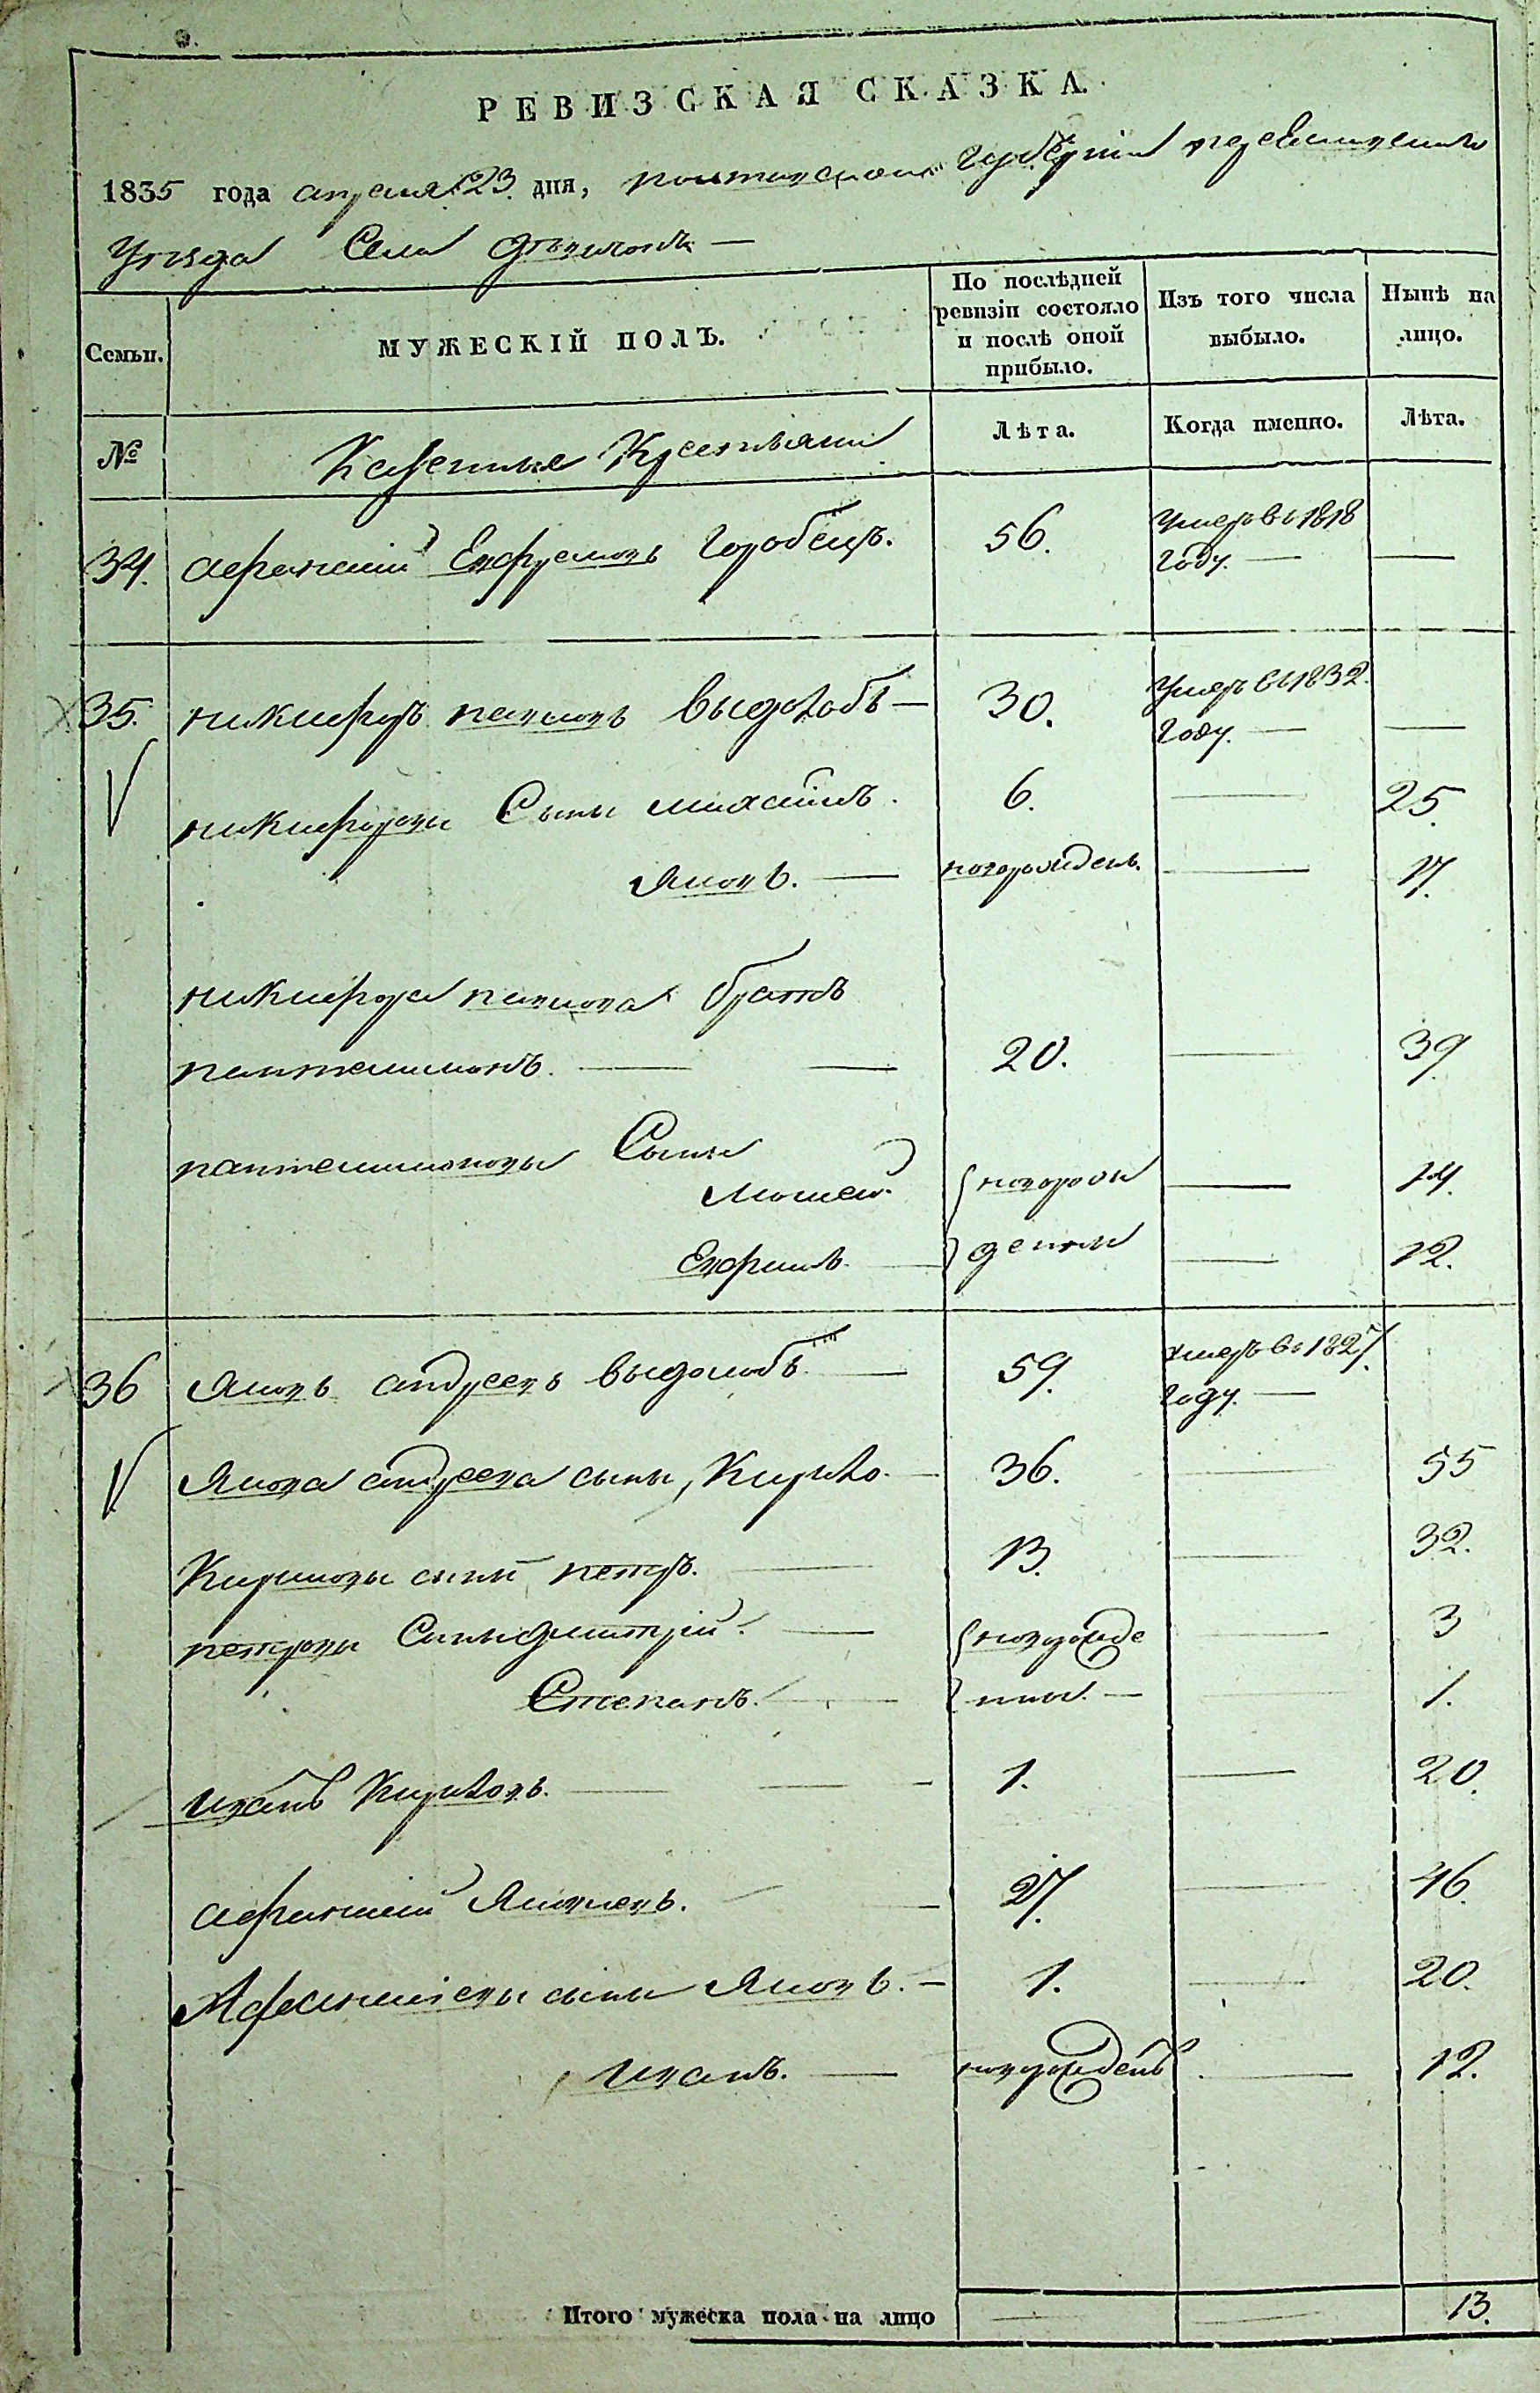 РЕВИЗСКАЯ СКАЗКА.
1835 года апреля 23. дня, полтавской губернии
Уезда Села
Семьи. МУЖЕСКІЙ ПОЛЪ. По послѣдней ревизіи состояло и послѣ оной прибыло. Изъ того числа выбыло. Нынѣ на лицо.
№ Казенные Крестьяни Лѣта. Когда имепно. Лѣта.
34. афанасий Ефремовъ Горобецъ. 56. Умеръ въ 1818 году. —
35. никифоръ павловъ выдолобъ — 30. Умеръ въ 1832. году. —
никифоровы Сыны михаилъ. 6. — 25.
Яковъ. — новорожденъ. — 17.
никифора павлова братъ
пантелимонъ. — — 20. — 39.
пантелимоновы Сыны
Мосией. новорож — 14.
Ефримъ. дении — 12.
36 Яковъ андреевъ выдолобъ — 59. Умеръ въ 1827. году. —
Якова андреева сыны, Кирило. — 36. — 55
Кириловы сыны петръ. — 13. — 32.
петровы Сыны дмитрій. — новорожде — 3
Степанъ. — нны. — — 1.
иванъ Кириловъ. — — 1. — 20.
афанасий Яковлевъ. — 27. — 46.
Афанасіевы сыны Яковъ. — 1. — 20.
иванъ. — новорожденъ — 12.
Итого мужеска пола на лицо — — 13.